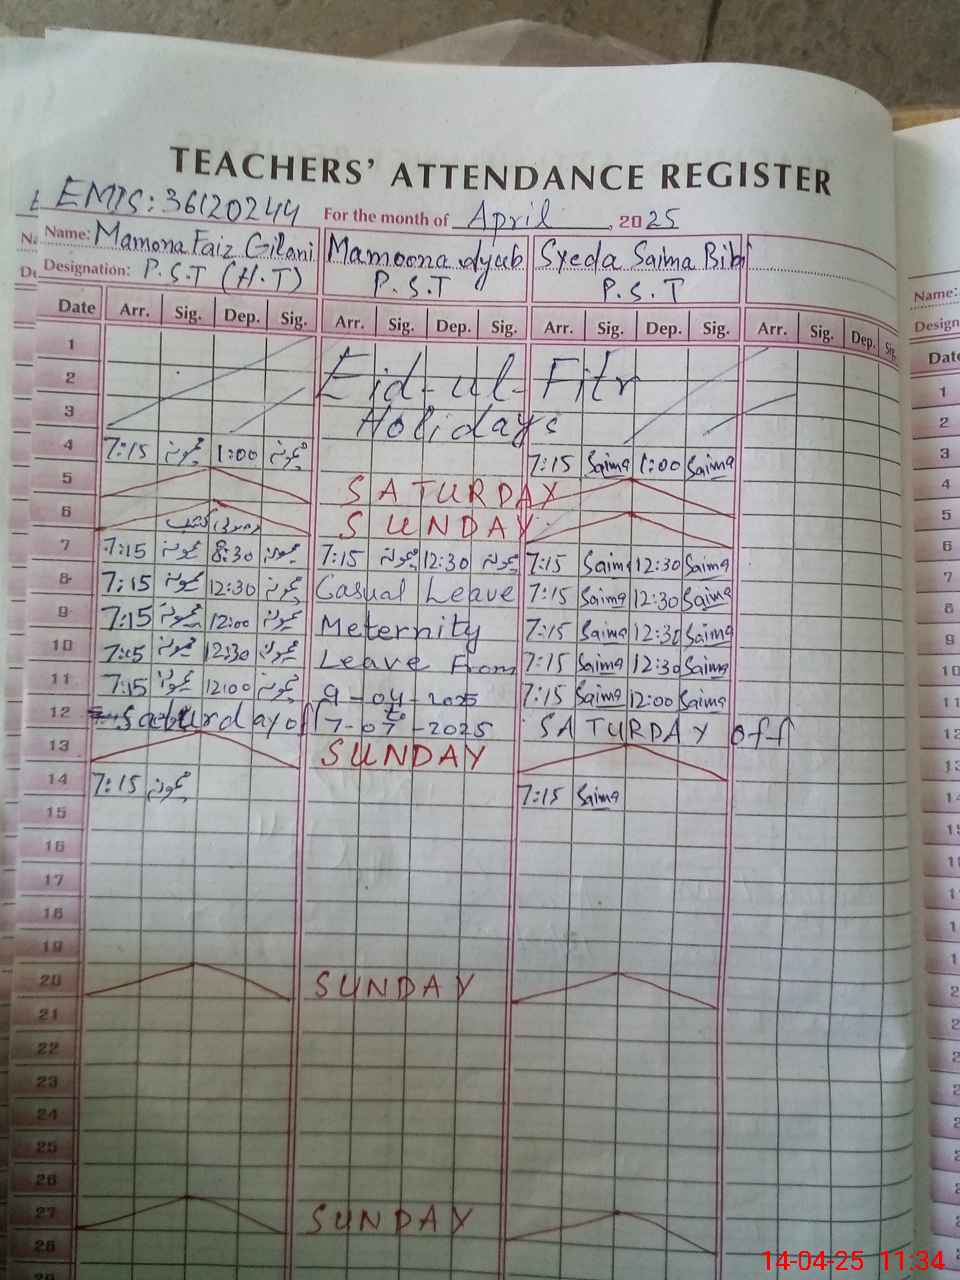 TEACHERS' ATTENDANCE REGISTER
EMIS: 36120244 For the month of April, 2025
Name: Mamona Faiz Gilani Mamoona Ayub Syeda Saima Bibi
Designation: P.S.T (H.T) P.S.T P.S.T
Date Arr. Sig. Dep. Sig. Arr. Sig. Dep. Sig. Arr. Sig. Dep. Sig. Arr. Sig. Dep. Sig.
1
2 Eid-ul-Fitr
3 Holidays
4 7:15 1:00 7:15 Saima 1:00 Saima
5 SATURDAY
6 SUNDAY
7 7:15 8:30 7:15 12:30 7:15 Saima 12:30 Saima
8 7:15 12:30 Casual Leave 7:15 Saima 12:30 Saima
9 7:15 12:00 Meternity 7:15 Saima 12:30 Saima
10 7:15 12:30 Leave From 7:15 Saima 12:30 Saima
11 7:15 12:00 9-04-2025 7:15 Saima 12:00 Saima
12 Saturday off to 7-07-2025 SATURDAY off
13 SUNDAY
14 7:15 7:15 Saima
15
16
17
18
19
20 SUNDAY
21
22
23
24
25
26
27 SUNDAY
28
Name:
Design
Date
1
2
3
4
5
6
7
8
9
10
11
12
13
14-04-25 11:34